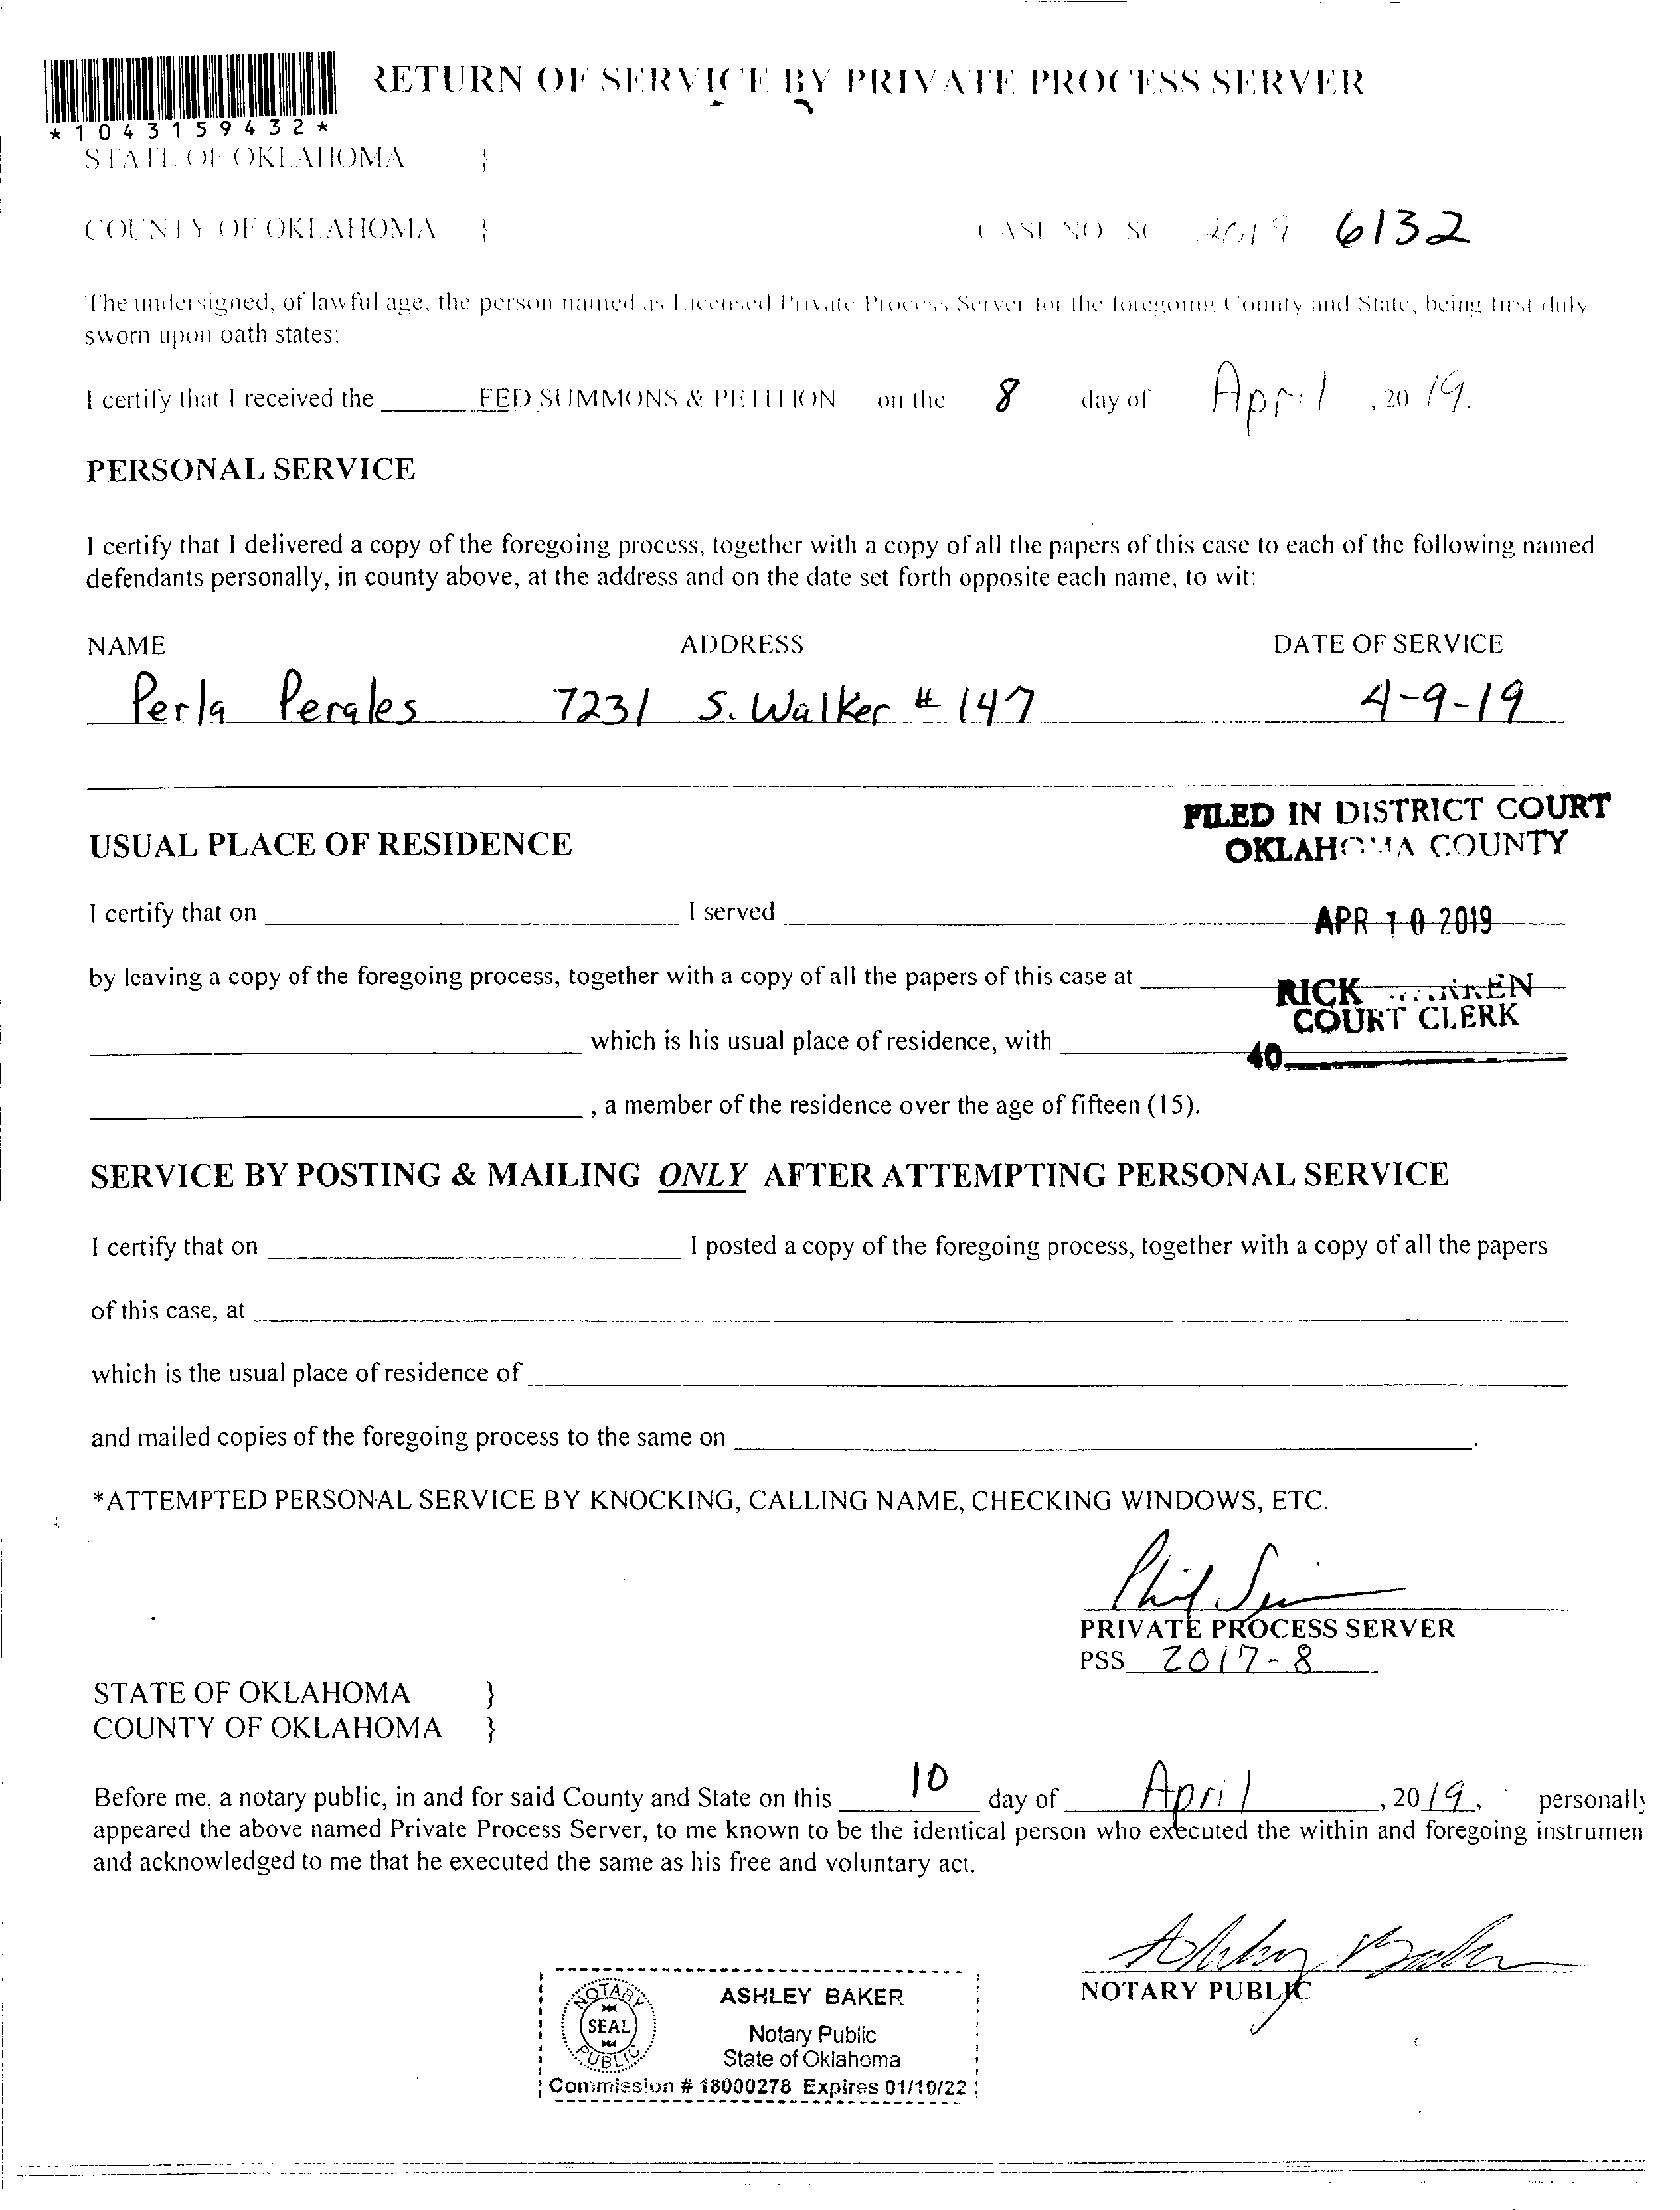 RETURN OF SERVICE BY PRIVATE PROCESS SERVER
*1043159432*
STATE OF OKLAHOMA }
COUNTY OF OKLAHOMA } CASE NO SC 2019 6132
The undersigned, of lawful age, the person named as Licensed Private Process Server for the foregoing County and State, being first duly
sworn upon oath states:
I certify that I received the FED SUMMONS & PETITION on the 8 day of April , 20 19.
PERSONAL SERVICE
I certify that I delivered a copy of the foregoing process, together with a copy of all the papers of this case to each of the following named
defendants personally, in county above, at the address and on the date set forth opposite each name, to wit:
NAME ADDRESS DATE OF SERVICE
Perla Perales 7231 S. Walker # 147 4-9-19
FILED IN DISTRICT COURT
OKLAHOMA COUNTY
USUAL PLACE OF RESIDENCE
I certify that on I served
APR 10 2019
by leaving a copy of the foregoing process, together with a copy of all the papers of this case at
RICK
COURT CLERK
which is his usual place of residence, with
40
, a member of the residence over the age of fifteen (15).
SERVICE BY POSTING & MAILING ONLY AFTER ATTEMPTING PERSONAL SERVICE
I certify that on I posted a copy of the foregoing process, together with a copy of all the papers
of this case, at
which is the usual place of residence of
and mailed copies of the foregoing process to the same on .
*ATTEMPTED PERSONAL SERVICE BY KNOCKING, CALLING NAME, CHECKING WINDOWS, ETC.
PRIVATE PROCESS SERVER
PSS 2017-8
STATE OF OKLAHOMA }
COUNTY OF OKLAHOMA }
Before me, a notary public, in and for said County and State on this 10 day of April , 2019, personally
appeared the above named Private Process Server, to me known to be the identical person who executed the within and foregoing instrumen
and acknowledged to me that he executed the same as his free and voluntary act.
Ashley Baker
NOTARY PUBLIC
NOTARY
SEAL
PUBLIC
ASHLEY BAKER
Notary Public
State of Oklahoma
Commission # 18000278 Expires 01/10/22